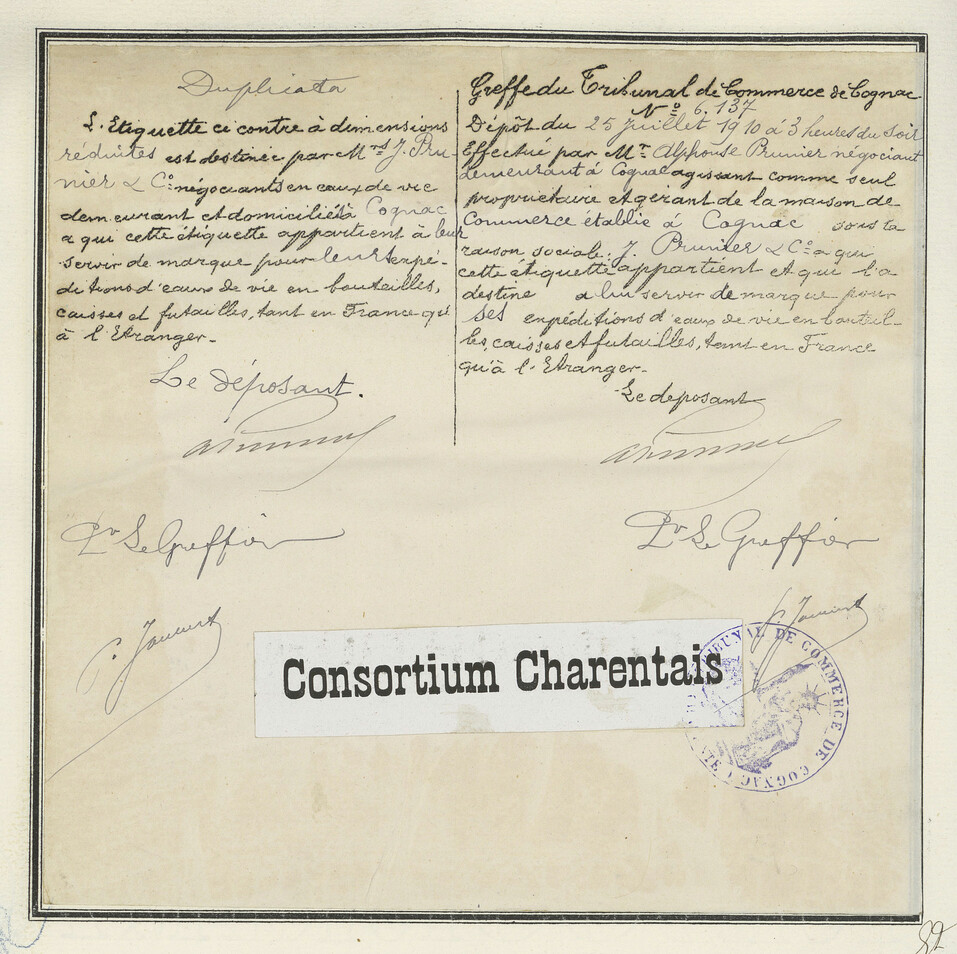 Duplicata
L'Etiquette ci contre à dimensions
réduites est destinée par Mrs J. Pru-
nier & Co négociants en eaux de vie
demeurant et domiciliés à Cognac
a qui cette étiquette appartient à leur
servir de marque pour leurs expé-
ditions d'eaux de vie en bouteilles,
caisses et futailles, tant en France qu'
à l'Etranger.
Le déposant.
Pr Le Greffier
Greffe du Tribunal de Commerce de Cognac
No 6.137
Dépôt du 25 Juillet 1910 à 3 heures du soir
Effectué par Mr Alphonse Prunier négociant
demeurant à Cognac agissant comme seul
propriétaire et gérant de la maison de
Commerce établie à Cognac sous la
raison sociale: J. Prunier & Co a qui
cette étiquette appartient et qui l'a
destine a lui servir de marque pour
ses expéditions d'eaux de vie en bouteil-
les, caisses et futailles, tant en France
qu'à l'Etranger.
Le déposant
Pr Le Greffier
Consortium Charentais
TRIBUNAL DE COMMERCE DE COGNAC
52